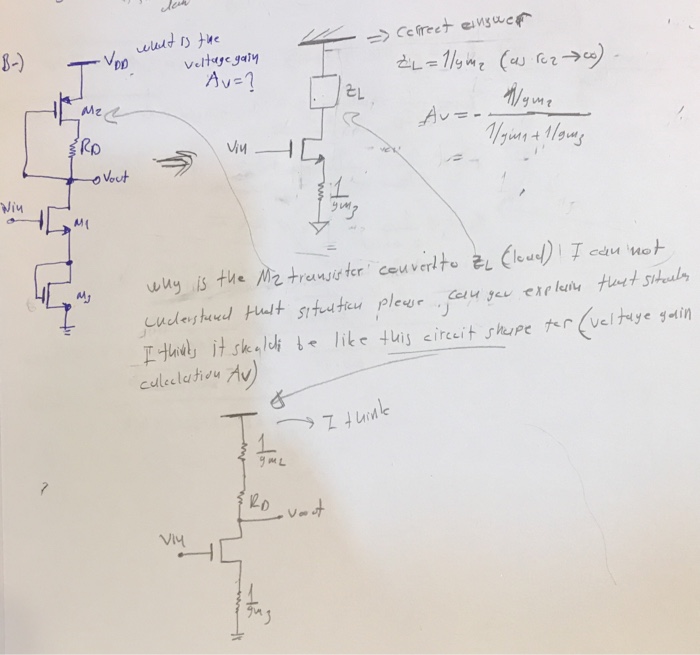 B-)
VDD
what is the
voltage gain
Av=?
M2
RD
Vout
Vin
M1
M3
=> correct answer
ZL = 1/gm2 (as ro2 → ∞)
ZL
Av = - 1/gm2
1/gm1 + 1/gm3
=
Vin
1
gm3
=
why is the M2 transistor convert to ZL (load)! I can not
understand that situation please. can you explain that situation
I think it should be like this circuit shape for (voltage gain
calculation Av)
→ I think
1
gm2
RD
Vout
Vin
1
gm3
?